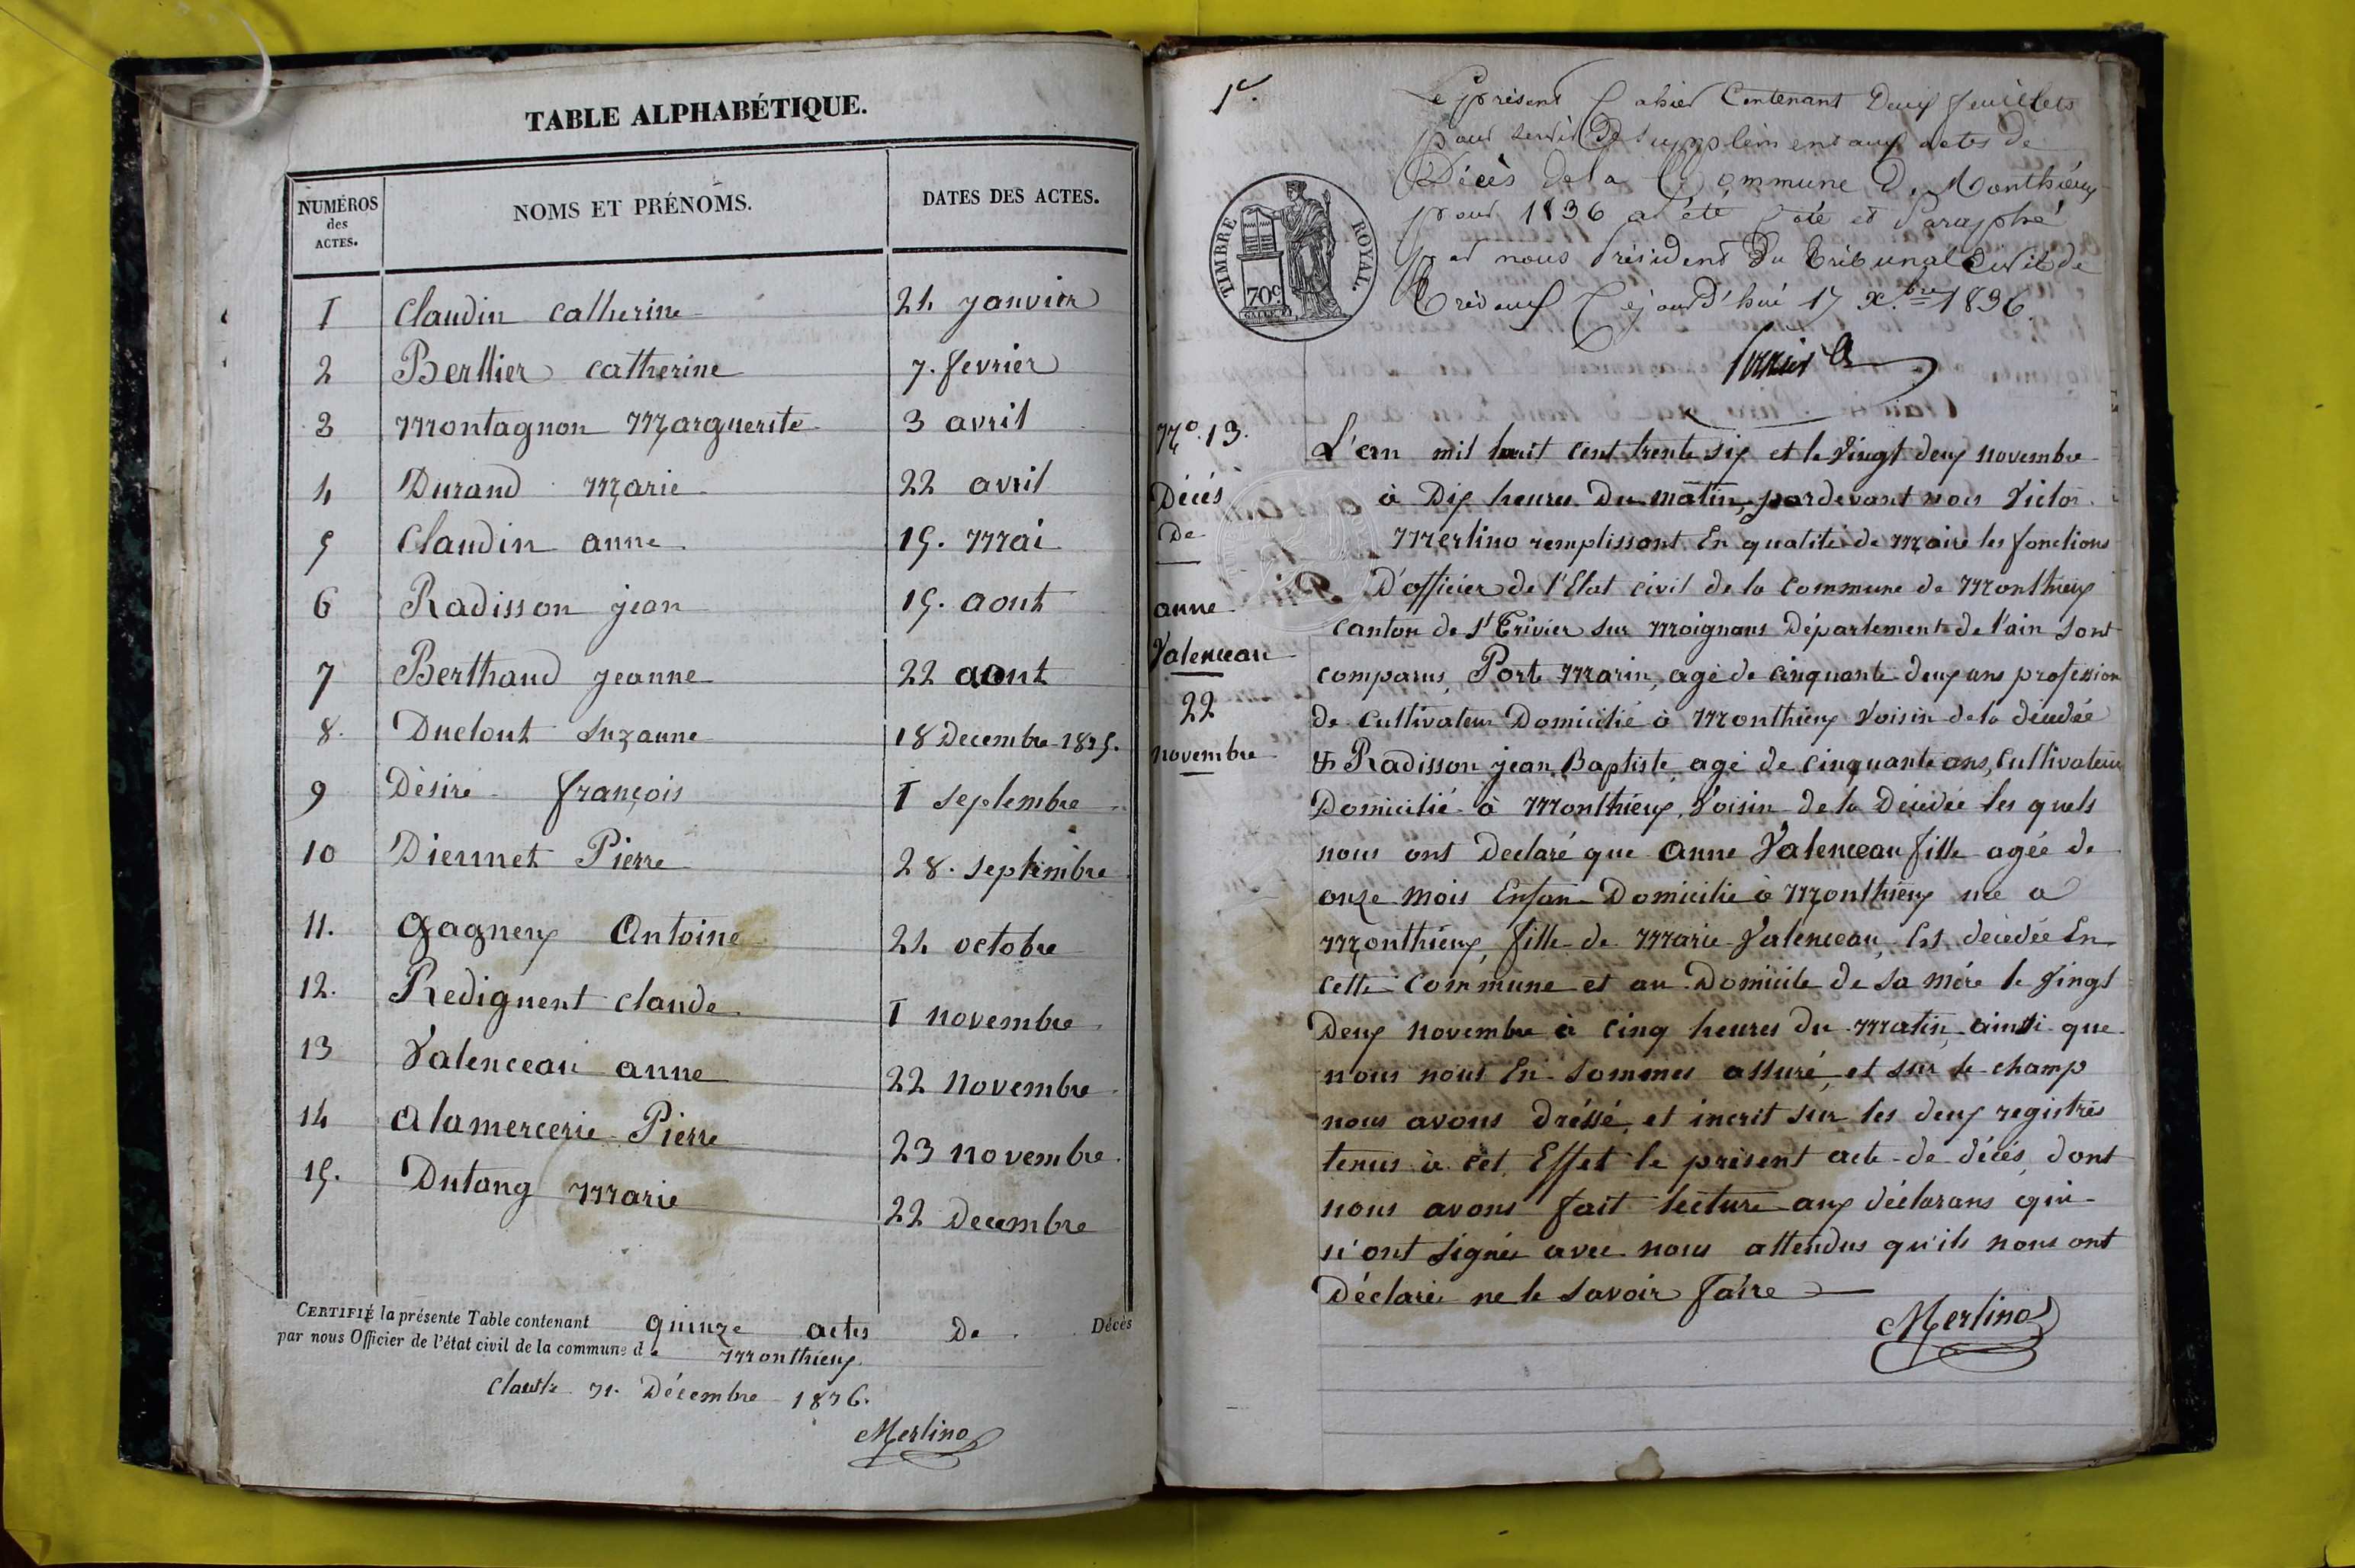 TABLE ALPHABÉTIQUE.
NUMÉROS
des
ACTES.
NOMS ET PRÉNOMS.
DATES DES ACTES.
1 Claudin Catherine 24 janvier
2 Berllier Catherine 7. fevrier
3 Montagnon Marguerite 3 avril
4 Durand Marie 22 avril
5 Claudin anne 15. Mai
6 Radisson jean 15. aout
7 Berthaud jeanne 22 aout
8. Duclout Suzanne 18 Decembre 1835.
9 Désiré françois 1 Septembre
10 Diennet Pierre 28. Septembre
11. Gagneux Antoine 24 octobre
12. Redignent claude 1 novembre
13 Valenceau anne 22 novembre
14 Alamercerie Pierre 23 novembre
15. Dutang Marie 22 Decembre
CERTIFIÉ la présente Table contenant quinze actes De Décès
par nous Officier de l'état civil de la commune de Monthieux
Clos le 31. Décembre 1836.
Merlino
1er.
Le présent Cahier Contenant Deux feuillets
pour servir De supplément aux actes de
Décès de la Commune De Monthieux
pour 1836 a été Coté et Paraphé
par nous Président Du Tribunal Civil de
Trévoux Cejourd'hui 17 Xbre 1836.
TIMBRE ROYAL
70c
N°. 13.
Décés
De
anne
Valenceau
22
novembre
L'an mil huit cent trente six et le Vingt deux novembre
à Dix heures Du matin, pardevant nous Victor
Merlino remplissant En qualité de Maire les fonctions
D'officier de l'Etat civil de la Commune de Monthieux
Canton de St Trivier sur Moignans Département de l'ain Sont
comparus, Porte Marin, agé de cinquante deux ans profession
de Cultivateur Domicilié à Monthieux Voisin de la décedée
Et Radisson jean Baptiste, agé de cinquante ans, Cultivateur
Domicilié à Monthieux, Voisin de la Décédée les quels
nous ont Declaré que Anne Valenceau fille agée de
onze mois Enfan Domicilie à Monthieux née a
Monthieux, fille de Marie Valenceau, Est décedée En
Cette Commune et au Domicile de Sa Mére le Vingt
Deux novembre à Cinq heures Du Matin, ainsi que
nous nous En Sommes assuré, et sur le champ
nous avons Dréssé, et incrit sur les deux registres
tenus à cet Effet le présent acte de décés, dont
nous avons fait lecture aux déclarans qui
n'ont Signée avec nous attendus qu'ils nous ont
Déclaré ne le Savoir faire
Merlino